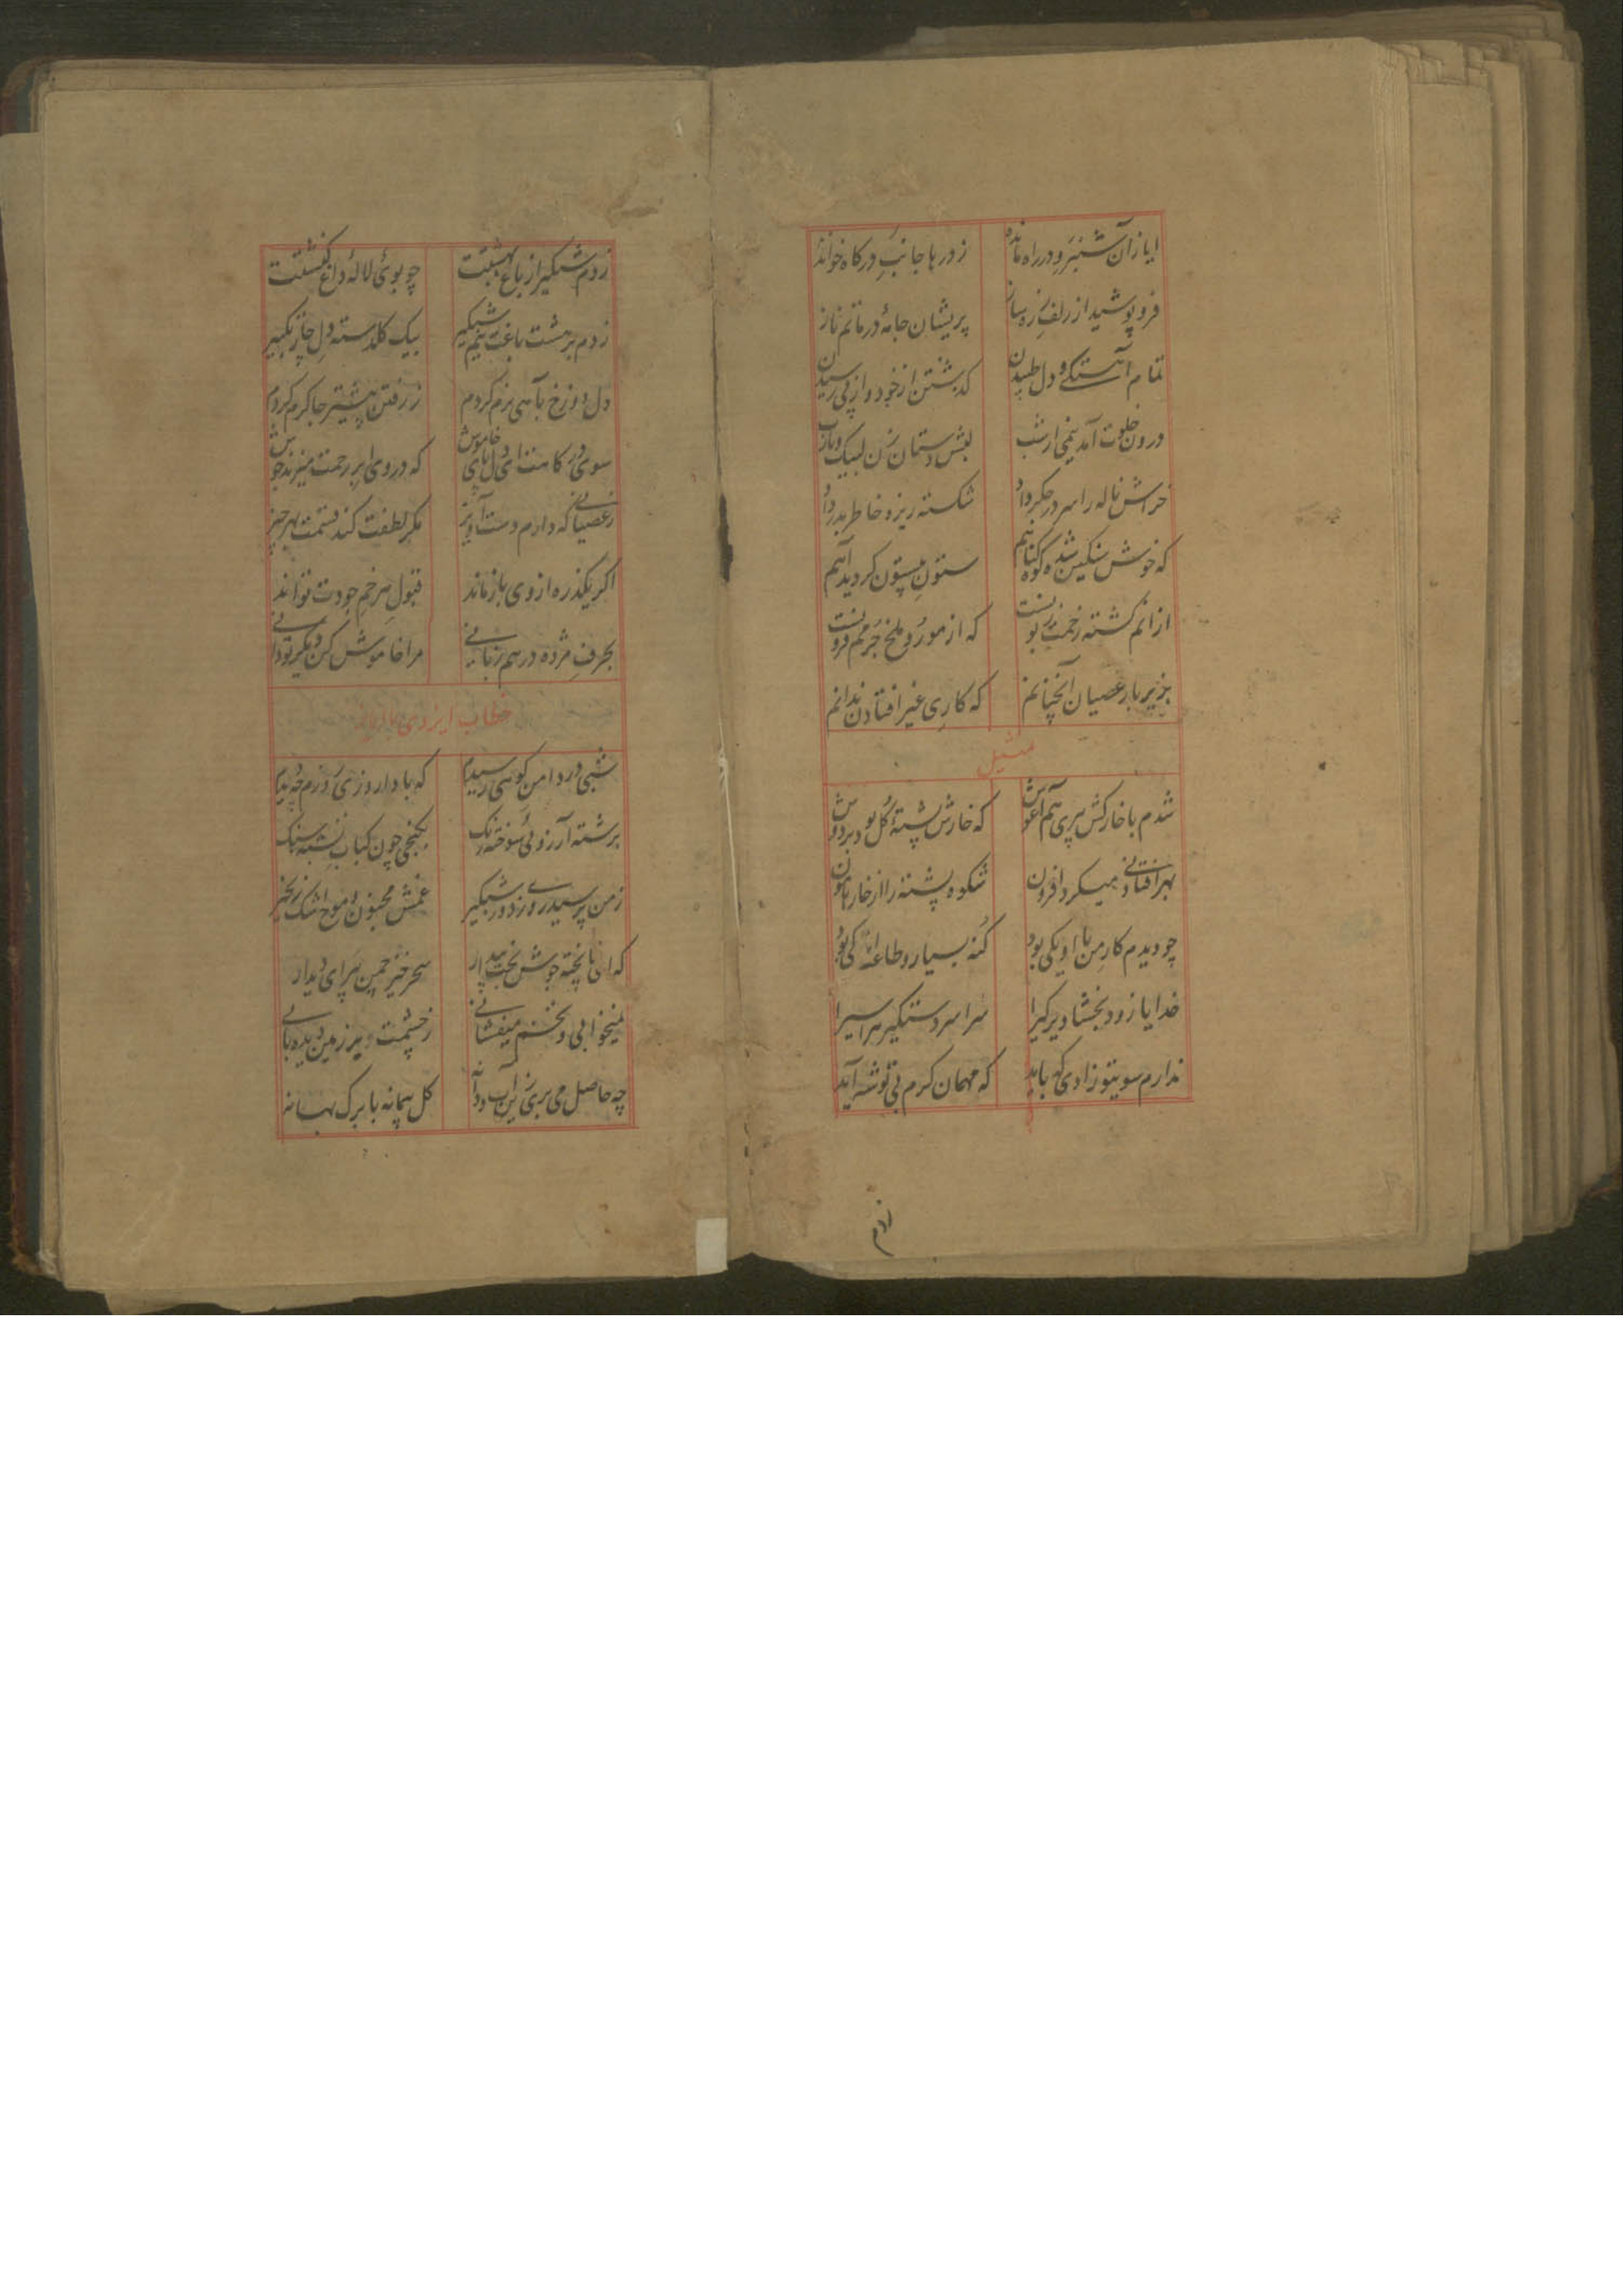 ایاز آن شبرو در راه مانده زدرها جانب درکاه خوانده
فرو پوشید از زلف پریشان جامهٔ در ماتم ناز
تمام آهستکی و دل طپیدن کذشتن از خود و از پی رسیدن
درون خلوت آمد نیمی از شب لبش دستان زن لبیک و یارب
خراش ناله را سر در جکر داد شکسته ریزهٔ خاطر بدر داد
که خوش سنکین شده کوه کناهم ستون بیستون کردید آهم
از انم کشته زحمت که از مور و ملخ جرمم فزونست
بزیر بار عصیان آنچنانم که کاری غیر افتادن ندانم
تمثیل
شدم با خارکش پیری هم آغوش که خارش پشتهٔ کل بود بر دوش
بهر افتادنی میکرد افزون شکوه پشته را از خار هامون
چو دیدم کار من با او یکی بود کنه بسیار و طاعت اندکی بود
خدایا زود بخشا دیر کیرا سراسر دستکیر هر اسیرا
ندارم سویتو زادی که باید که مهمان کرم بی توشه آید
زدم
زدم شبکیر از باغ بهشتت چو بوی لالهٔ داغ کنشتت
زدم بر هشت باغت نیم شبکیر بیک کلدسته دل جاز بکیر
دل دوزخ بآهی نرم کردم ز رفتن پیشتر جا کرم کردم
سوی درکاهت ای دل خاموش که در وی ابر رحمت میزند جوش
ز عصیانی که دارم دست آویز مکر لطفت کند قسمت بهر چیز
اکر یکذره از وی باز ماند قبول هر خم جودت تواند
بحرف مژده در هم زبانی مرا خاموش کن دیکر تو دانی
خطاب ایزدی با ایاز
شبی در دامن کوهی رسیدم که با دا روزی روزم چو دیدم
برشته آرزوئی سوخته رنک بکنجی چون کباب تشنه سنک
ز من پرسید رمزی دور شبکیر غمش مجنون و موج اشک زنجیر
که ای ناپخته جوش بخت بیدار سحر خیز چمن پیرای دیدار
نمیخوابی و تخم میفشانی ز چشمت ریز زمین دیده بانی
چه حاصل می بری زین آب و دانه کل پیمانه با برک بهانه